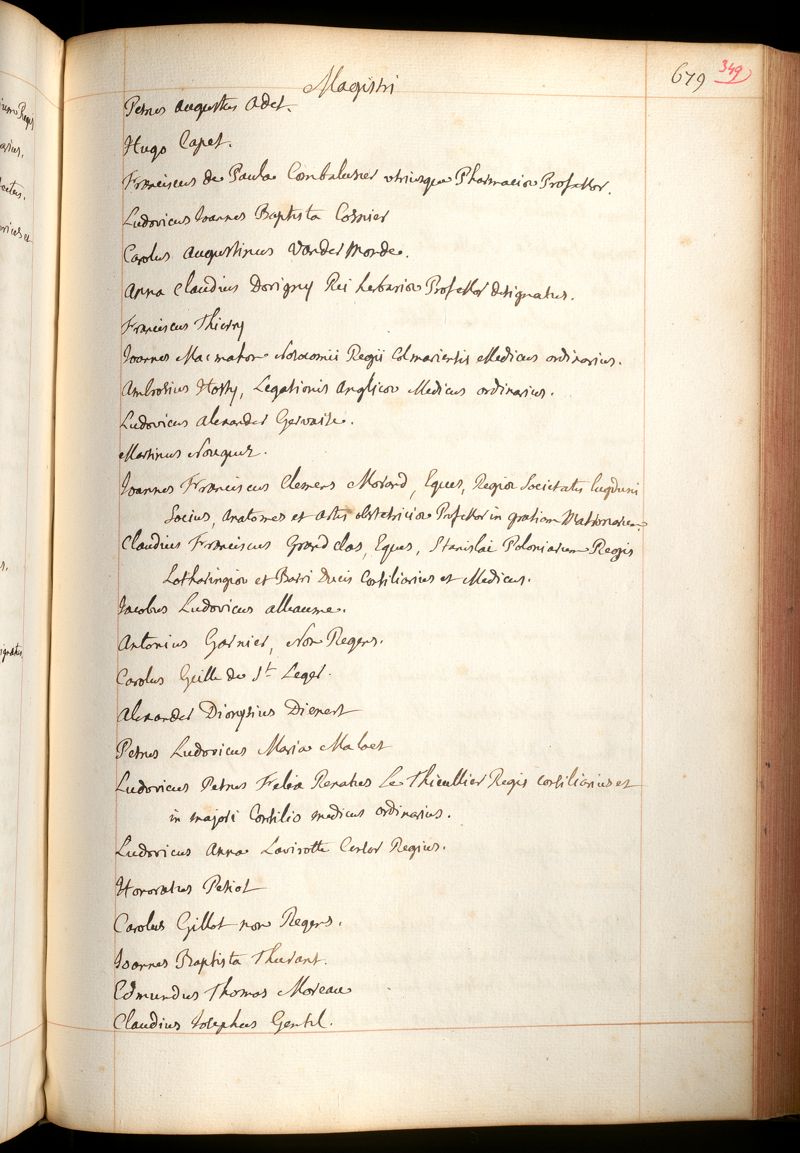 Magistri
679 349
Petrus Augustus Adet.
Hugo Capet.
Franciscus de Paula Combalusier utriusque Pharmaciae Professor.
Ludovicus Joannes Baptista Cosnier
Carolus Augustinus Vandermonde.
Anna Claudius Dorigny Rei herbariae Professor designatus.
Franciscus Thierry
Joannes Macmahon Nosocomii Regii Colmariensis Medicus ordinarius.
Ambrosius Hosty, Legationis Anglicae Medicus ordinarius.
Ludovicus Alexander Gervaise.
Martinus Nouguez.
Joannes Franciscus Clemens Morand, Eques, Regiae Societatis lugduni
Socius, Anatomes et Artis obstetriciae Professor in gratiam Matronarum.
Claudius Franciscus Grandclas, Eques, Stanislai Poloniarum Regis
Lotharingiae et Barri Ducis Consiliarius et Medicus.
Jacobus Ludovicus alleaume.
Antonius Garnier, Non Regens.
Carolus Geille de St Leger.
Alexander Dionysius Dienert
Petrus Ludovicus Maria Maloet
Ludovicus Petrus Felix Renatus Le Thieullier Regis consiliarius et
in majori Consilio medicus ordinarius.
Ludovicus Anna Lavirotte Censor Regius.
Honoratus Petiot
Carolus Gillot non Regens.
Joannes Baptista Thurant.
Edmundus Thomas Moreau
Claudius Josephus Gentil.